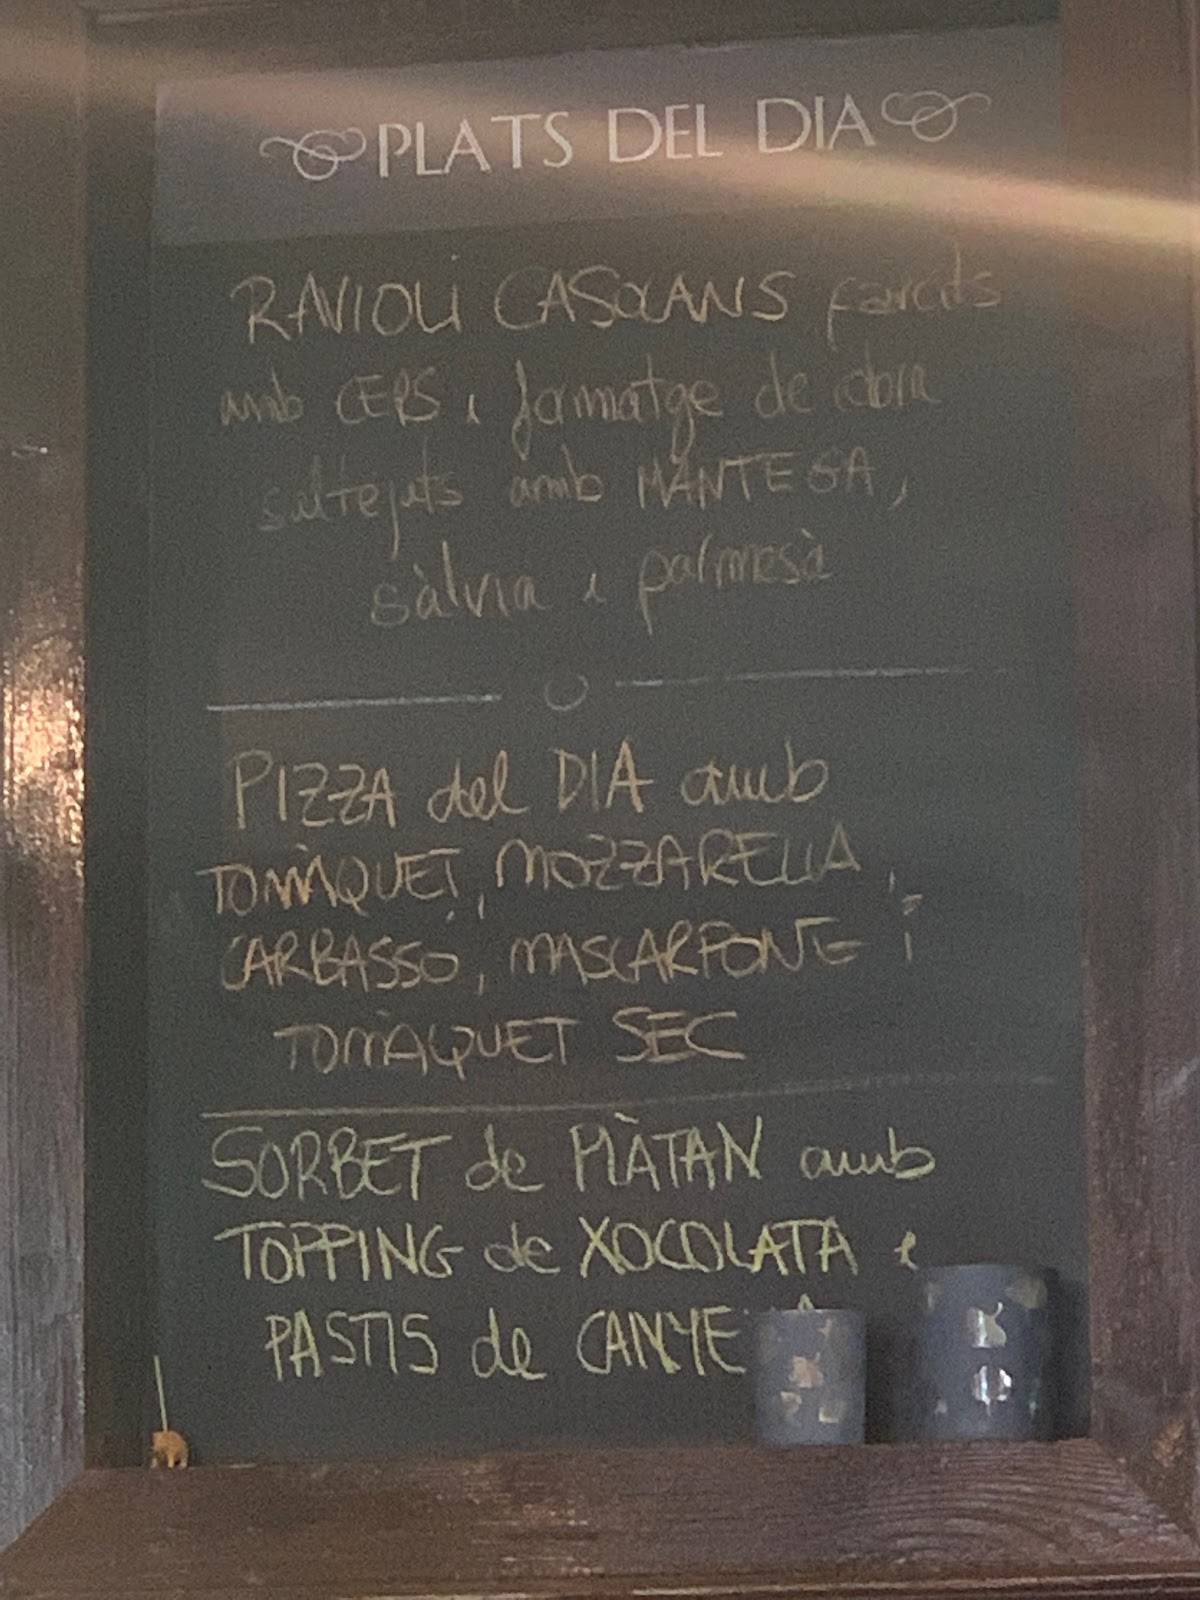 PLATS DEL DIA
RAVIOLI CASOLANS farcits
amb CEPS i formatge de cabra
saltejats amb MANTEGA,
sàlvia i parmesà
PIZZA del DIA amb
TOMÀQUET, MOZZARELLA,
CARBASSÓ, MASCARPONE i
TOMÀQUET SEC
SORBET de PLÀTAN amb
TOPPING de XOCOLATA i
PASTIS de CANYE